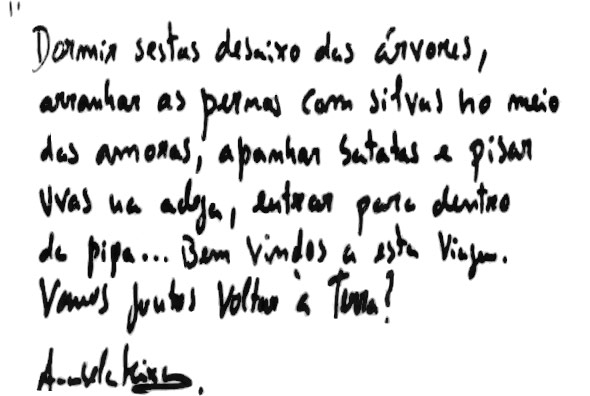 "
Dormir sestas debaixo das árvores,
arranhar as pernas com silvas no meio
das amoras, apanhar batatas e pisar
uvas na adega, entrar para dentro
da pipa... Bem vindos a esta Viagem.
Vamos juntos Voltar à Terra?